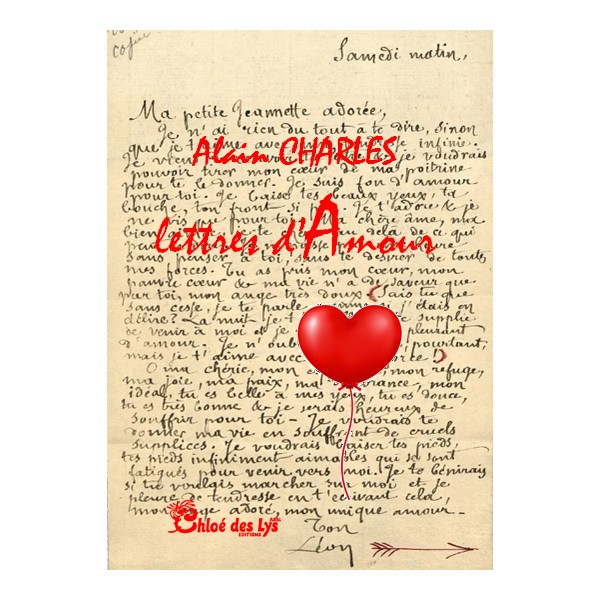 copie
Samedi matin,
Ma petite Jeannette adorée,
Je n'ai rien du tout à te dire, sinon
que je t'aime avec infinie.
Alain CHARLES
Je viens je voudrais
pouvoir tirer mon cœur de ma poitrine
pour te le donner. Je suis fou d'amour
pour toi. Je baise tes beaux yeux, ta
bouche, ton front si Je t'adore & je
ne vis que pour toi. Ma chère âme, ma
au delà de ce que
lettres d'Amour
sans penser à toi, sans te désirer de toutes
mes forces. Tu as pris mon cœur, mon
pauvre cœur & ma vie n'a de saveur que
par toi, mon ange très doux. Sais tu que
sans cesse, je te parle si j'étais en
délire? La nuit je t' te supplie
de venir à moi et je pleurant
d'amour. Je n' pourtant,
mais je t'aime avec
O ma chérie, mon mon refuge,
ma joie, ma paix, ma mon
idéal, tu es belle à mes yeux, tu es douce,
tu es très bonne & je serais heureux de
souffrir pour toi - Je voudrais te
donner ma vie en souffrant de cruels
supplices. Je voudrais baiser tes pieds,
tes pieds infiniment aimables qui se sont
fatigués pour venir vers moi. Je te bénirais
si tu voulais marcher sur moi et je
pleure de tendresse en t'écrivant cela,
mon adoré, mon unique amour -
Chloé des Lys
EDITIONS
Ton
Léon